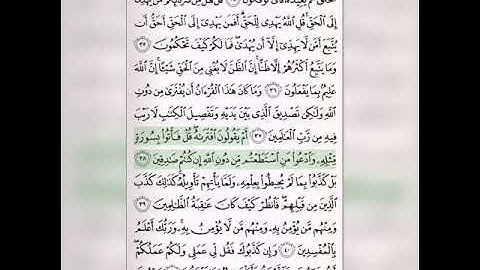 ٱلْخَلْقَ ثُمَّ يُعِيدُهُۥ فَأَنَّىٰ تُؤْفَكُونَ ٣٤ قُلْ هَلْ مِن شُرَكَآئِكُم مَّن يَهْدِىٓ
إِلَى ٱلْحَقِّ قُلِ ٱللَّهُ يَهْدِى لِلْحَقِّ أَفَمَن يَهْدِىٓ إِلَى ٱلْحَقِّ أَحَقُّ أَن
يُتَّبَعَ أَمَّن لَّا يَهِدِّىٓ إِلَّآ أَن يُهْدَىٰ فَمَا لَكُمْ كَيْفَ تَحْكُمُونَ ٣٥
وَمَا يَتَّبِعُ أَكْثَرُهُمْ إِلَّا ظَنًّا إِنَّ ٱلظَّنَّ لَا يُغْنِى مِنَ ٱلْحَقِّ شَيْـًٔا إِنَّ ٱللَّهَ
عَلِيمٌۢ بِمَا يَفْعَلُونَ ٣٦ وَمَا كَانَ هَٰذَا ٱلْقُرْءَانُ أَن يُفْتَرَىٰ مِن دُونِ
ٱللَّهِ وَلَٰكِن تَصْدِيقَ ٱلَّذِى بَيْنَ يَدَيْهِ وَتَفْصِيلَ ٱلْكِتَٰبِ لَا رَيْبَ
فِيهِ مِن رَّبِّ ٱلْعَٰلَمِينَ ٣٧ أَمْ يَقُولُونَ ٱفْتَرَىٰهُ قُلْ فَأْتُوا۟ بِسُورَةٍ
مِّثْلِهِۦ وَٱدْعُوا۟ مَنِ ٱسْتَطَعْتُم مِّن دُونِ ٱللَّهِ إِن كُنتُمْ صَٰدِقِينَ ٣٨
بَلْ كَذَّبُوا۟ بِمَا لَمْ يُحِيطُوا۟ بِعِلْمِهِۦ وَلَمَّا يَأْتِهِمْ تَأْوِيلُهُۥ كَذَٰلِكَ كَذَّبَ
ٱلَّذِينَ مِن قَبْلِهِمْ فَٱنظُرْ كَيْفَ كَانَ عَٰقِبَةُ ٱلظَّٰلِمِينَ ٣٩
وَمِنْهُم مَّن يُؤْمِنُ بِهِۦ وَمِنْهُم مَّن لَّا يُؤْمِنُ بِهِۦ وَرَبُّكَ أَعْلَمُ
بِٱلْمُفْسِدِينَ ٤٠ وَإِن كَذَّبُوكَ فَقُل لِّى عَمَلِى وَلَكُمْ عَمَلُكُمْ